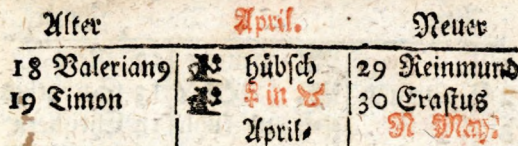 Alter April. Neuer
18 Valerian9 hübsch 29 Reinmund
19 Timon ♀ in ♉ 30 Erastus
April⸗ N May.